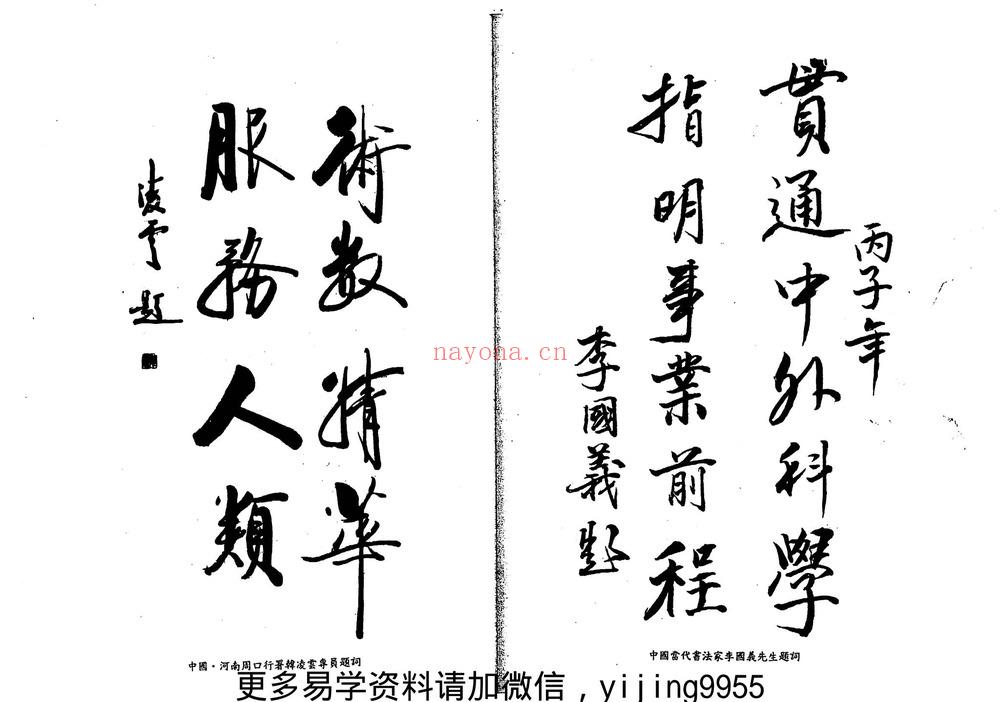 丙子年
貫通中外科學
指明事業前程
李國義題
中國當代書法家李國義先生題詞
術数精華
服務人類
凌雲題
中國·河南周口行署韓凌雲專員題詞
nayona.cn
更多易学资料请加微信，yijing9955